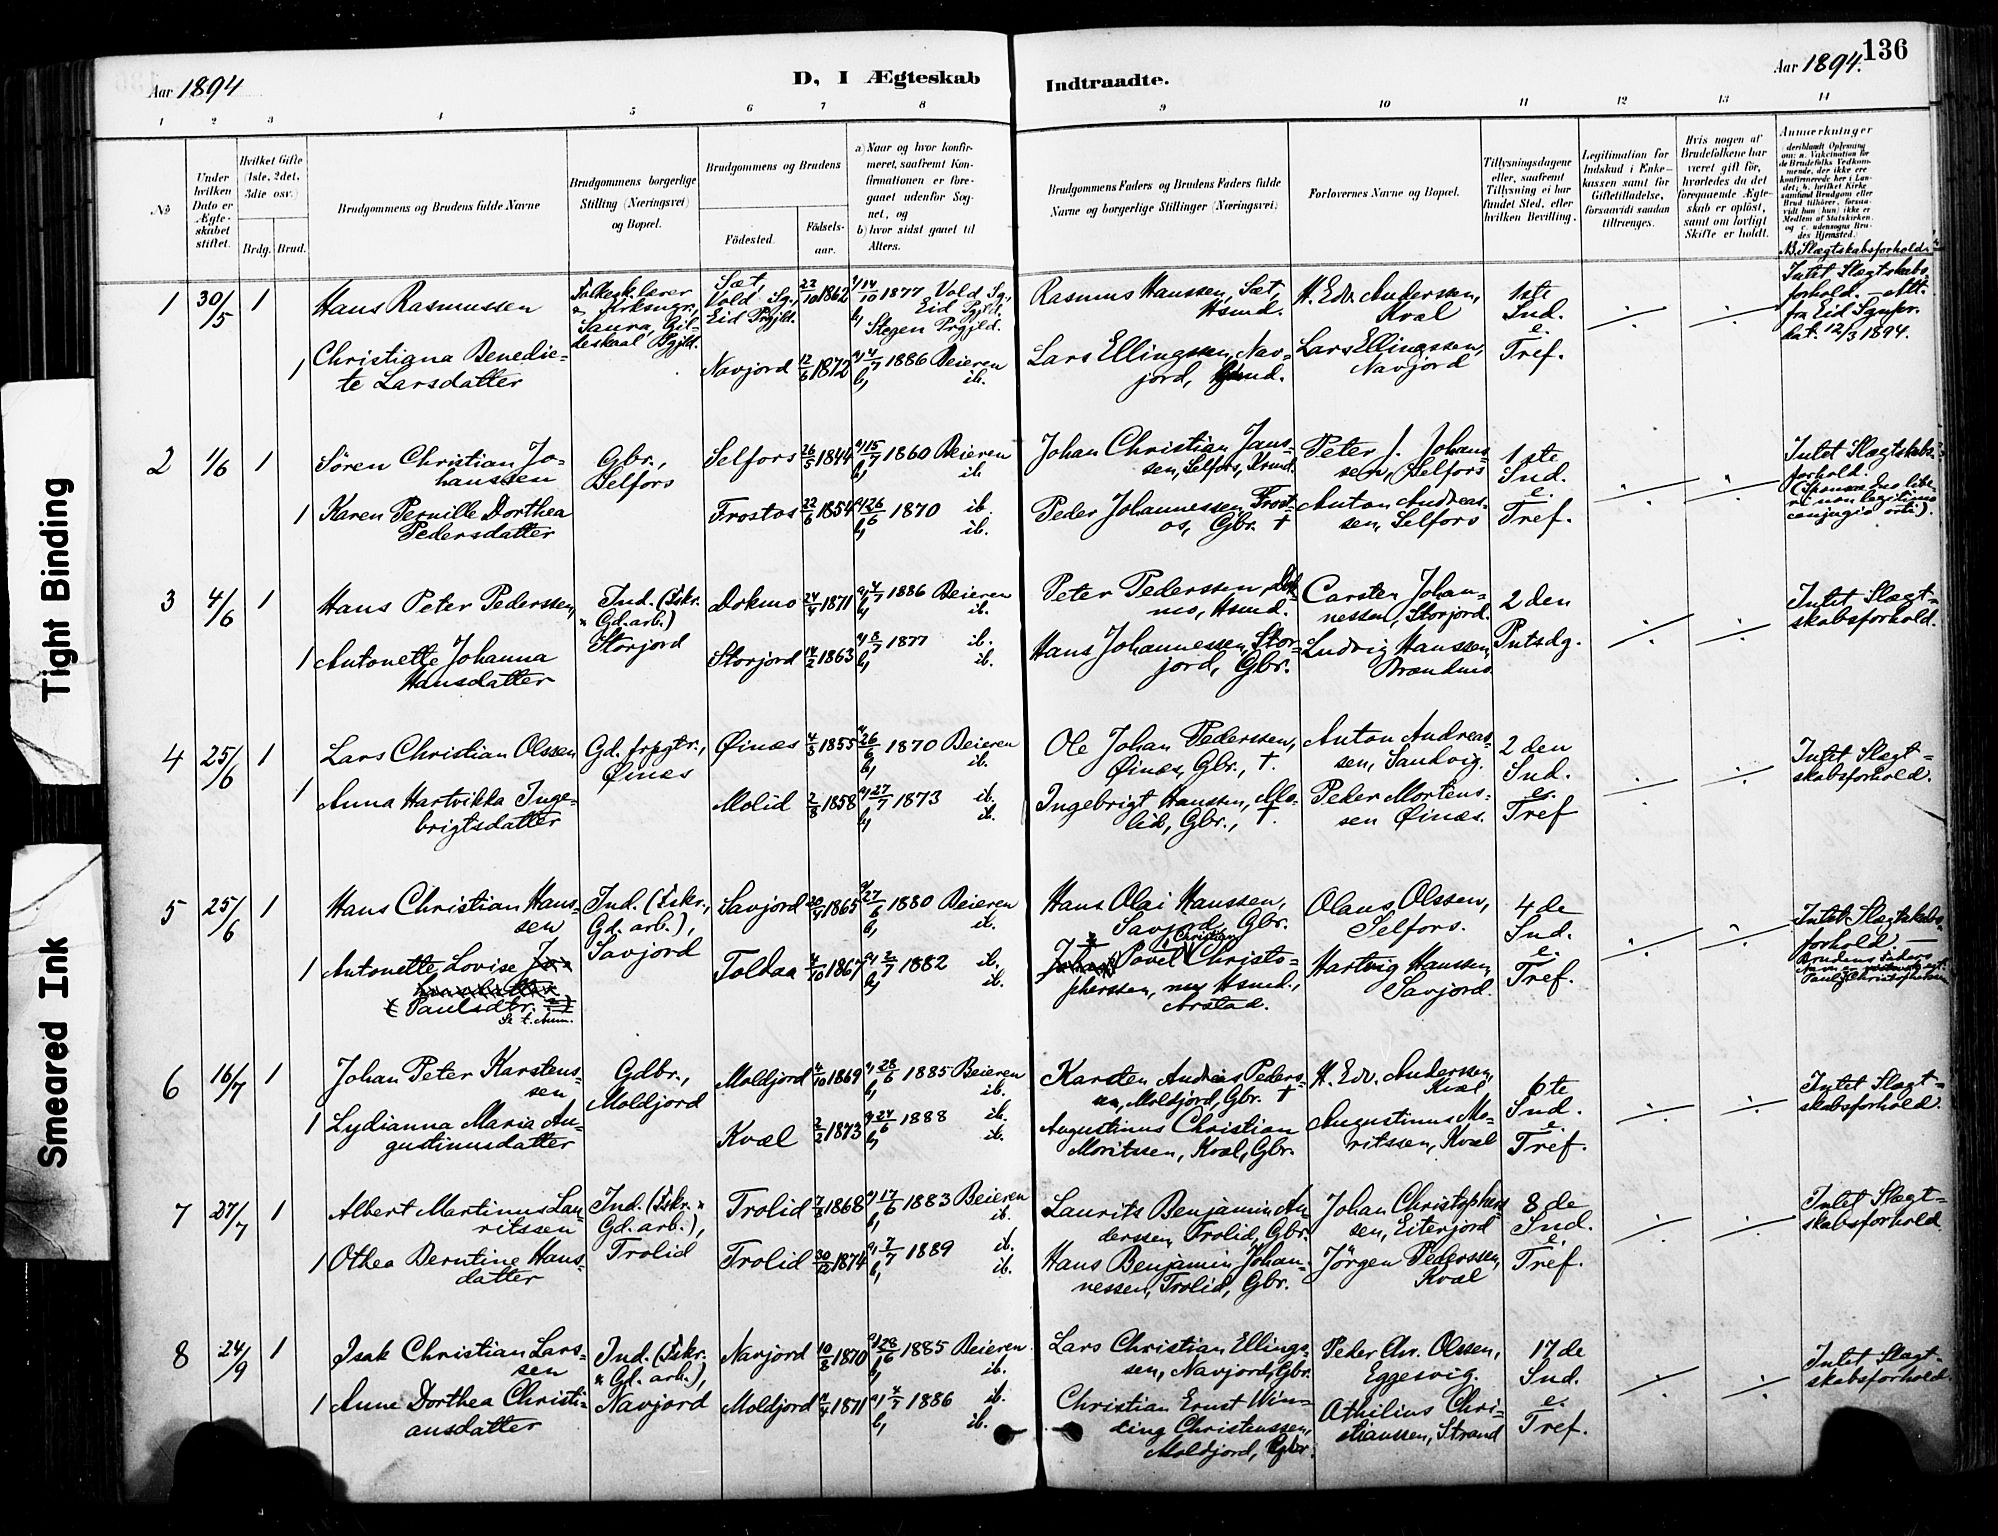 136
Aar 1894
D, I Ægteskab
Indtraadte.
Aar 1894.
1 2 3 4 5 6 7 8
9 10 11 12 13 14
№
Under hvilken Dato er Ægteskabet stiftet.
Hvilket Gifte (1ste, 2det, 3die osv.)
Brdg. Brud.
Brudgommens og Brudens fulde Navne
Brudgommens borgerlige Stilling (Næringsvei) og Bopæl.
Brudgommens og Brudens
Födested.
Födselsaar.
a) Naar og hvor konfirmeret, saafremt Konfirmationen er foregaaet udenfor Sognet, og
b) hvor sidst gaaet til Alters.
Brudgommens Faders og Brudens Faders fulde Navne og borgerlige Stillinger (Næringsvei)
Forlovernes Navne og Bopæl.
Tillysningsdagene eller, saafremt Tillysning ei har fundet Sted, efter hvilken Bevilling.
Legitimation for Indskud i Enkekassen samt for Giftetilladelse, forsaavidt saadan tiltrænges.
Hvis nogen af Brudefolkene har været gift før, hvorledes da det foregaaende Ægteskab er oplöst, samt om lovligt Skifte er holdt.
Anmerkninger
(deriblandt Oplysning om: a. Vakcination for de Brudefolks Vedkommende, der ikke ere konfirmerede her i Landet; b. hvilket Kirkesamfund Brudgom eller Brud tilhörer, forsaavidt han (hun) ikke er Medlem af Statskirken, og c. udensogns Brudes Hjemsted.)
N3. Slægtskabsforhold.
1 30/5 1 Hans Rasmussen
Folkesk.lærer & kirkesgr., Saura, Gildeskaal Pgjld.
Sæt, Vold Sg., Eid Prgjld. 22/10 1862
a, 14/10 1877 Vold Sg., Eid Pgjld.
b, Stegen Prgjld.
Rasmus Hanssen, Sæt, Hsmd.
H. Edv. Anderssen, Kval
1ste Ind. e. Tref.
Intet Slægtskabsforhold. — Att. fra Eid Sgnpr. dat. 12/3 1894.
1 Christiana Benedicte Larsdatter
Navjord 12/6 1872
a, 4/7 1886 Beieren
b, ib.
Lars Ellingssen, Navjord, Hsmd.
Lars Ellingssen, Navjord
2 1/6 1 Sören Christian Johanssen
Gbr., Selfors
Selfors 26/5 1844
a, 15/7 1860 Beieren
b, ib.
Johan Christian Janssen, Selfors, Hsmd.
Peter J. Johanssen, Selfors
1ste Ind. e. Tref.
Intet Slægtskabsforhold.
(Sponsae duo liberi non legitimo conjugio orti).
1 Karen Pernille Dorthea Pedersdatter
Frostos 22/6 1854
a, 26/6 1870 ib.
b, ib.
Peder Johannessen, Frostos, Gbr. †
Anton Andreassen, Selfors
3 4/6 1 Hans Peter Pederssen,
Ind. (Fiskr. & Gd.arb.) Storjord
Dokmo 24/4 1871
a, 4/7 1886 Beieren
b, ib.
Peter Pederssen, Dokmo, Hsmd.
Carsten Johannessen, Storjord.
2den Pntsdg.
Intet Slægtskabsforhold.
1 Antonette Johanna Hansdatter
Storjord 14/2 1863
a, 8/7 1877 ib.
b, ib.
Hans Johannessen, Storjord, Gbr.
Ludvig Hanssen, Brændmo.
4 25/6 1 Lars Christian Olssen
Gd. frpgtr., Øinæs
Øinæs 4/3 1855
a, 26/6 1870 Beieren
b, ib.
Ole Johan Pederssen, Øinæs, Gbr., †.
Anton Andreassen, Sandvig.
2den Ind. e. Tref
Intet Slægtskabsforhold.
1 Anna Hartvikka Ingebrigtsdatter
Molid 2/8 1858
a, 27/7 1873 ib.
b, ib.
Ingebrigt Hanssen, Molid, Gbr., †.
Peder Mortenssen Øinæs.
5 25/6 1 Hans Christian Hanssen
Ind. (Fiskr., Gd. arb.), Savjord
Savjord 20/4 1865
a, 27/6 1880 Beieren
b, ib.
Hans Olai Hanssen, Savjord, Gbr.
Olaus Olssen, Selfors.
4de Ind. e. Tref.
Intet Slægtskabsforhold. —
Brudens Faders Navn er
Paul Christophersen
1 Antonette Lovise
(Paulsdtr.)
Se t. Anm.
Toldaa 4/10 1867
a, 2/7 1882 ib.
b, ib.
Povel Christian Christopherssen, Hsmd., Arstad.
Hartvig Hanssen, Savjord.
6 16/7 1 Johan Peter Karstenssen
Gdbr., Moldjord
Moldjord 4/10 1869
a, 28/6 1885 Beieren
b, ib.
Karsten Andreas Pederssen, Moldjord, Gbr. †
H. Edv. Anderssen, Kval
6te Ind. e. Tref.
Intet Slægtskabsforhold.
1 Lydianna Maria Augustinusdatter
Kvæl 2/2 1873
a, 24/6 1888 ib.
b, ib.
Augustinus Christian Moritssen, Kvæl, Gbr.
Augustinus Moritssen, Kvæl
7 27/7 1 Albert Martinus Lauritssen
Ind. (Fiskr. & Gd. arb.), Trolid
Trolid 7/3 1868
a, 17/6 1883 Beieren
b, ib.
Laurits Benjamin Anderssen, Trolid, Gbr.
Johan Christopherssen, Eiterjord
8de Ind. e. Tref.
Intet Slægtskabsforhold
1 Othea Berntine Hansdatter
Trolid 1874
a, 7/7 1889 ib.
b, ib.
Hans Benjamin Johannessen, Trolid, Gbr.
Jörgen Pederssen, Kval
8 24/9 1 Isak Christian Larssen
Ind. (Fiskr. & Gd. arb.), Navjord
Navjord 10/8 1870
a, 28/6 1885 Beieren
b, ib.
Lars Christian Ellingssen, Navjord, Gbr.
Peder Chr. Olssen, Eggesvig.
17de Ind. e. Tref.
Intet Slægtskabsforhold
1 Anne Dorthea Christiansdatter
Moldjord 1871
a, 4/7 1886 ib.
b, ib.
Christian Ernst Winding Christenssen, Moldjord, Gbr.
Athilius Christianssen, Strand
Tight Binding
Smeared Ink